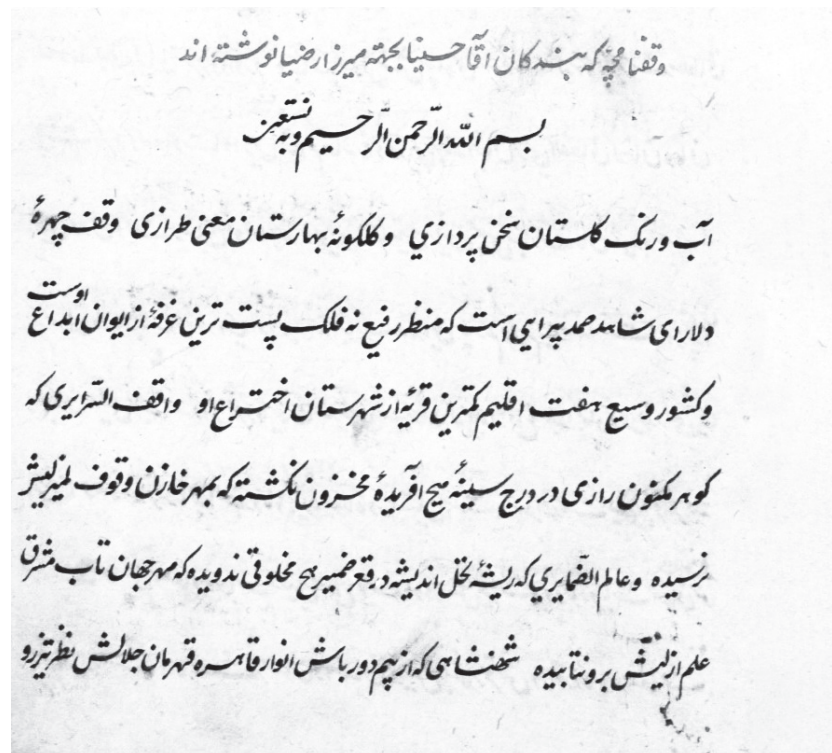 وقفنامچه که بندکان اقآ حسینا بجهة میرزا رضیا نوشته اند
بسم الله الرّحمن الرّحیم وبه نستعین
آب ورنک کلستان سخن پردازي وکلکونهٔ بهارستان معنی طرازی وقف چهرهٔ
دلارای شاهد حمد پیرایی است که منظر رفیع نه فلک پست ترین غرفهٔ از ایوان ابداع اوست
وکشور وسیع هفت اقلیم کمترین قریهٔ از شهرستان اختراع او واقف السّرایری که
کوهر مکنون رازی در درج سینهٔ هیچ آفریدهٔ مخزون نکشته که بمهر خازن وقوف لمیزلیش
نرسیده وعالم الضّمایري که ریشهٔ نخل اندیشه در قعر ضمیر هیچ مخلوقی ندویده که مهر جهان تاب مشرق
علم ازلیّش برو نتابیده شهنشاهی که از بیم دورباش انوار قاهره قهرمان جلالش نظر تیزرو